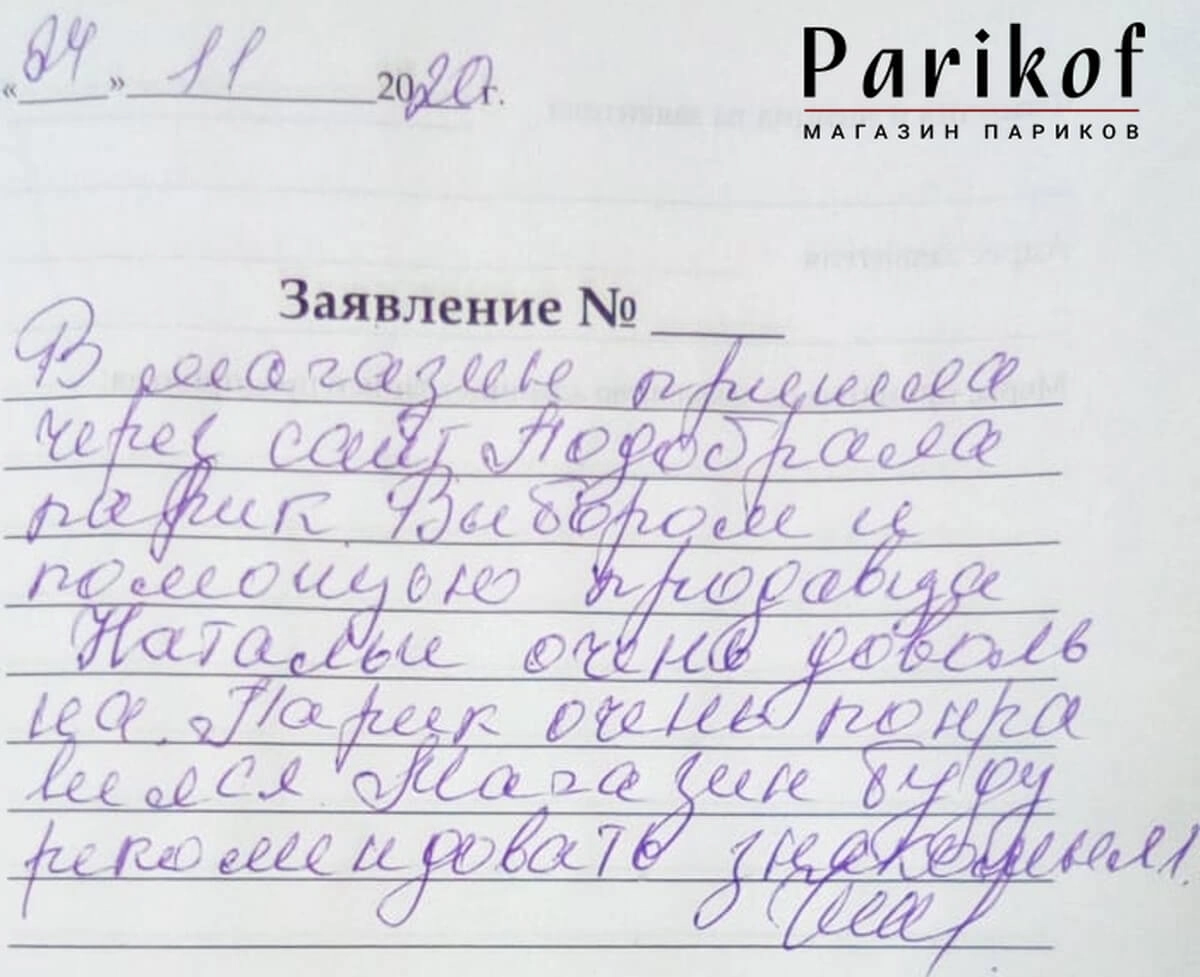 «24» 11 2020 г.
Parikof
МАГАЗИН ПАРИКОВ
Заявление №
В магазин пришла
через сайт Подобрала
парик. Выбором и
помощью продавца
Натальи очень доволь
на. Парик очень понра
вился. Магазин буду
рекомендовать знакомым.